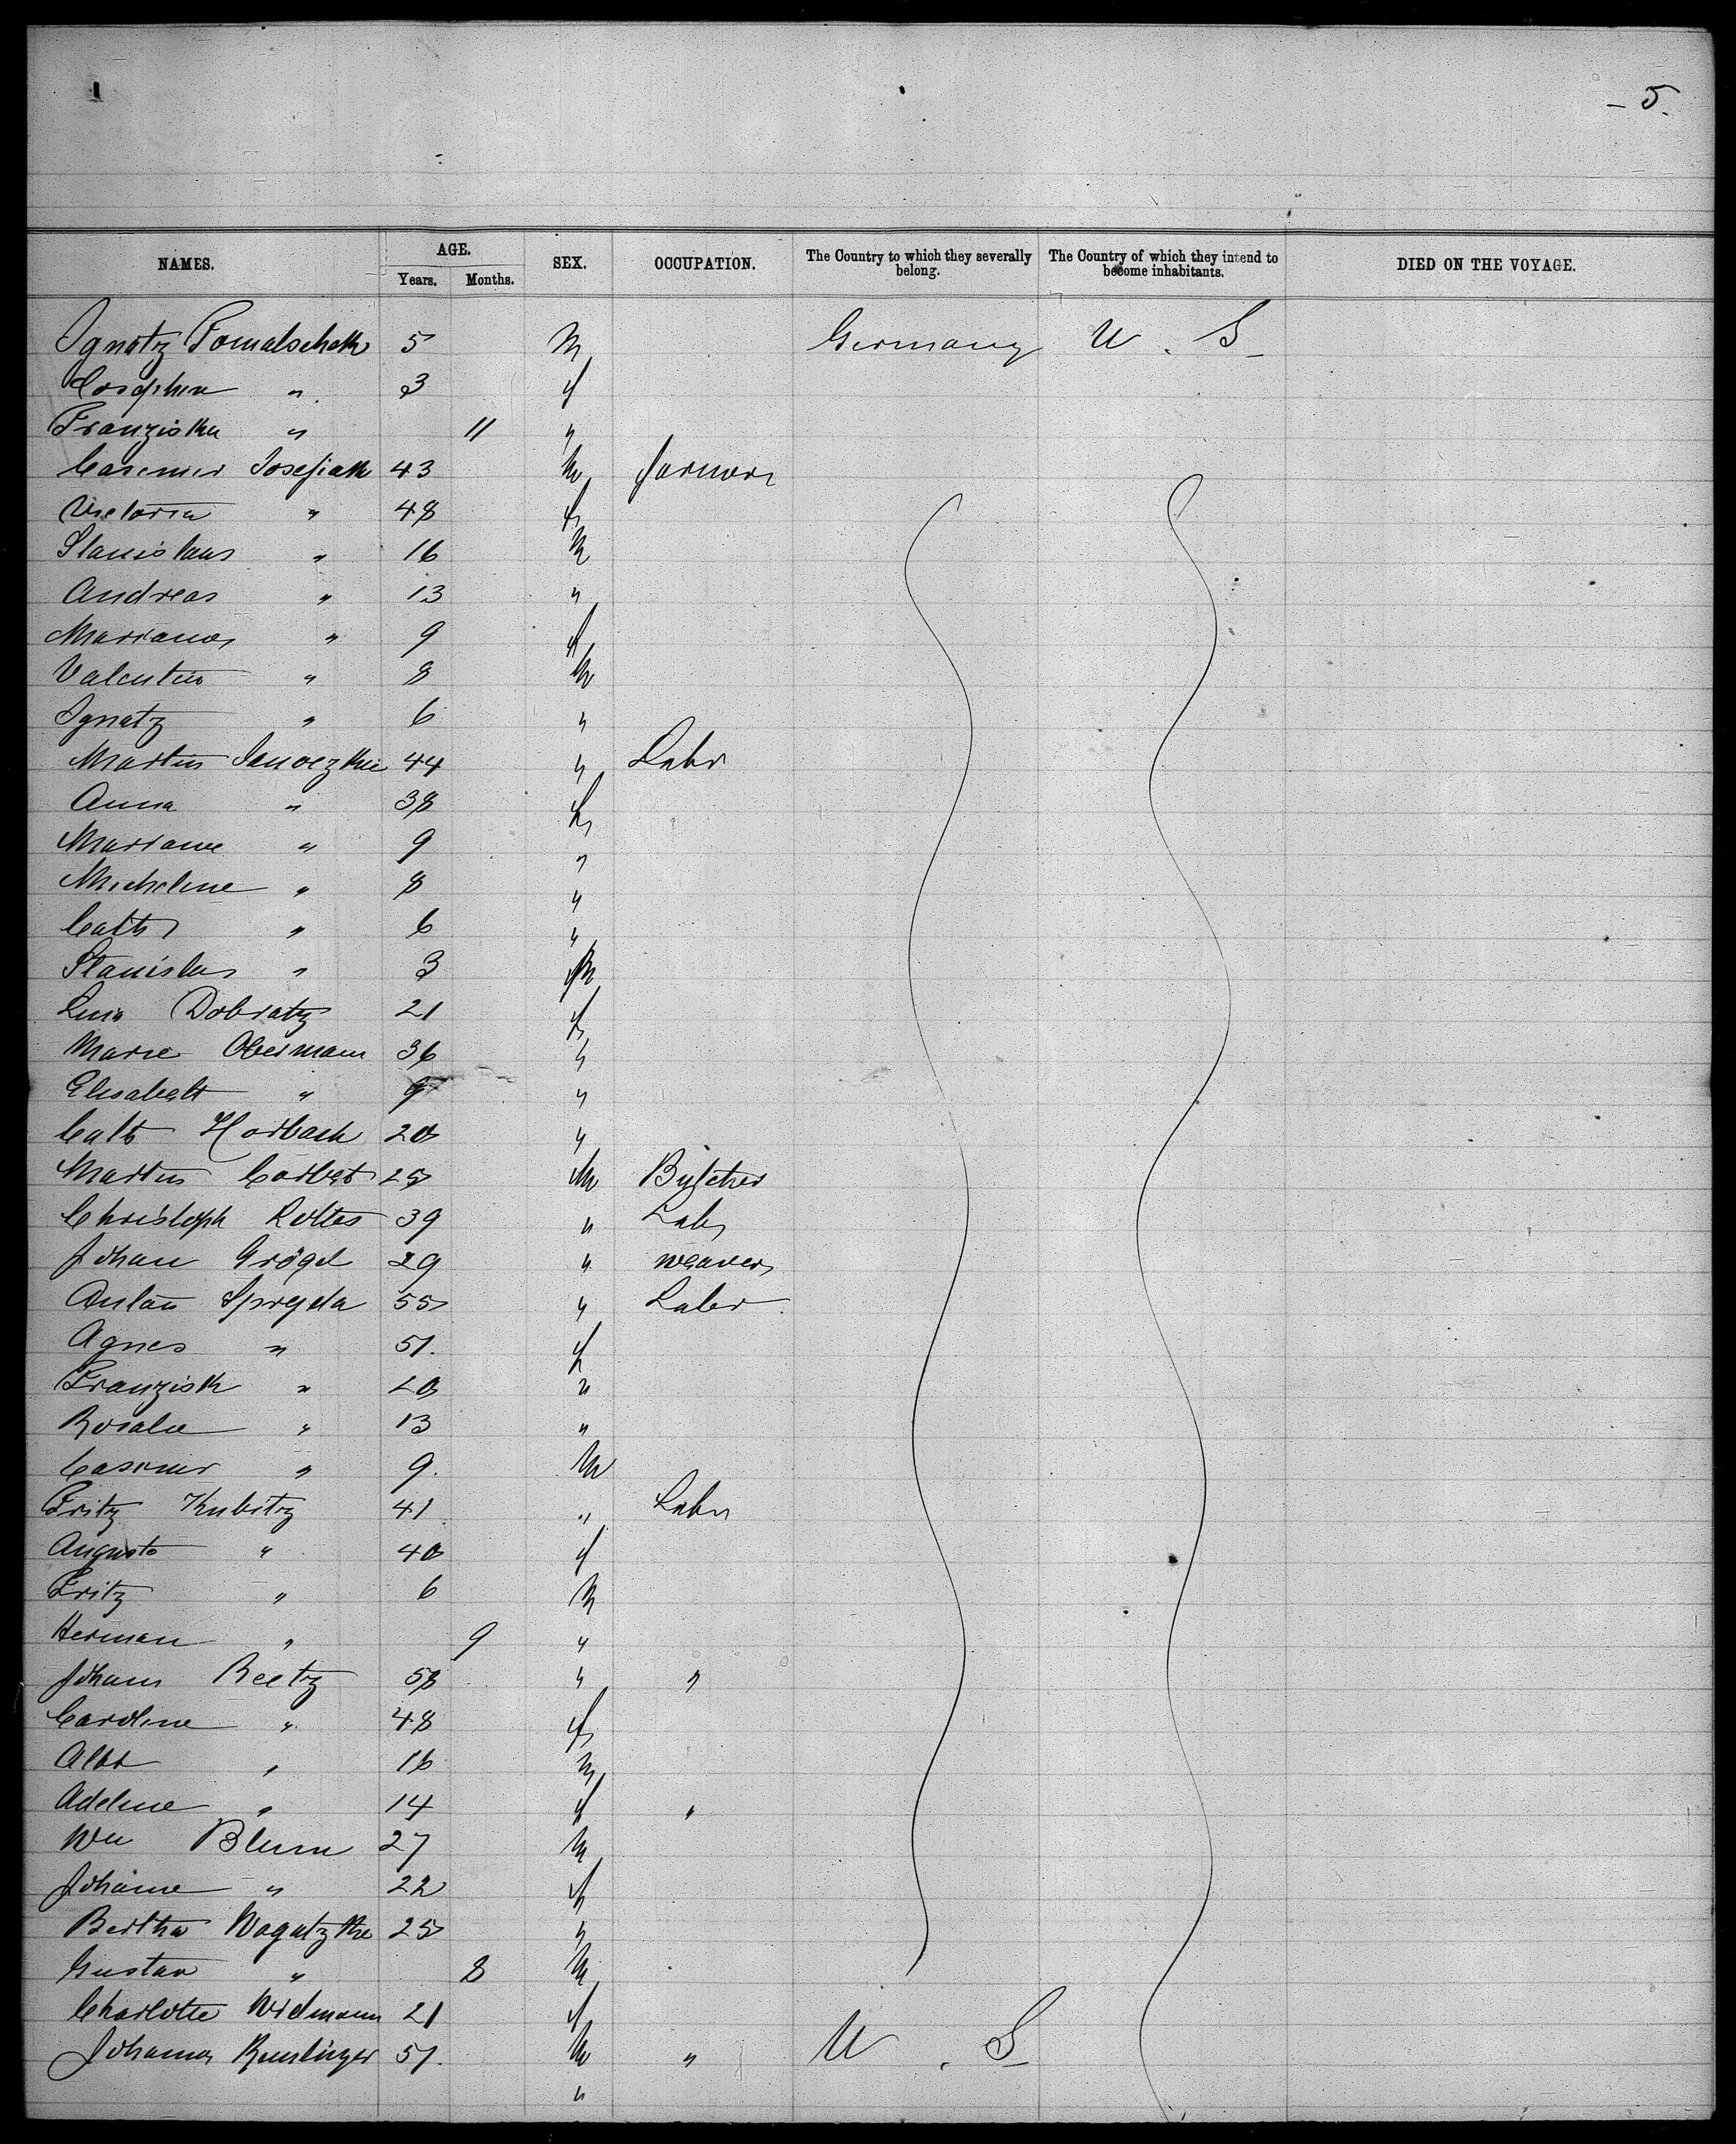 - 5.
NAMES. AGE. Years. Months. SEX. OCCUPATION. The Country to which they severally belong. The Country of which they intend to become inhabitants. DIED ON THE VOYAGE.
Ignatz Tomalschek 5 M Germany U. S
Josephine " 3 f
Franziska " 11 "
Casemir Josefiak 43 M farmer
Victoria " 48 f
Stanislaus " 16 M
Andreas " 13 "
Marianna " 9 f
Valentin " 8 M
Ignatz " 6 "
Martin 44 " Labr
Anna " 38 f
Mariane " 9 "
Micheline " 8 "
Cath " 6 "
Stanislus " 3 M
Dobratz 21 f
Marie Obermann 36 "
Elisabeth " 9 "
Cath Horbach 20 "
Martin Corbet 25 M Butcher
Christoph Loltes 39 " Labr
Johan Grögel 29 " weaver
Anton Spryda 55 " Labor
Agnes " 51. f
Franzisk " 20 "
Rosalie " 13 "
Casimir " 9. M
Fritz Kubitz 41 " Labr
Auguste " 40 f
Fritz " 6 M
Herman " 9 "
Johann Reetz 58 " "
Caroline " 48 f
Albt " 16 M
Adeline " 14 f "
Wm Blum 27 M
Johanne " 22 f
Bertha Wogatzke 25 "
Gustav " 8 M
Charlotte Widmann 21 f
Johannes 51. M " U. S
"